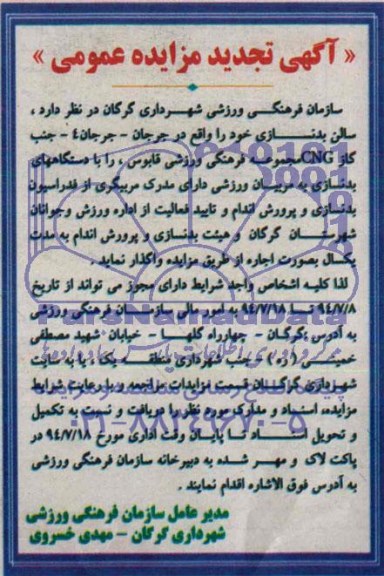 « آگهی تجدید مزایده عمومی »
سازمان فرهنگی ورزشی شهرداری گرگان در نظر دارد ،
سالن بدنسازی خود را واقع در جرجان - جرجان٤ - جنب
گاز CNGمجموعه فرهنگی ورزشی قابوس ، را با دستگاههای
بدنسازی به مربیان ورزشی دارای مدرک مربیگری از فدراسیون
بدنسازی و پرورش اندام و تایید فعالیت از اداره ورزش وجوانان
شهرستان گرگان و هیئت بدنسازی و پرورش اندام به مدت
یکسال بصورت اجاره از طریق مزایده واگذار نماید .
لذا کلیه اشخاص واجد شرایط دارای مجوز می تواند از تاریخ
۹۴/۷/۸ تا ۹۴/۷/۱۸ به امور مالی سازمان فرهنگی ورزشی
به آدرس گرگان - چهارراه گلها - خیابان شهید مصطفی
خمینی (ره) - جنب شهرداری منطقه یک ، یا به سایت
شهرداری گرگان قسمت مزایدات مراجعه و با رعایت شرایط
مزایده، اسناد و مدارک مورد نظر را دریافت و نسبت به تکمیل
و تحویل اسناد تا پایان وقت اداری مورخ ۹۴/۷/۱۸ در
پاکت لاک و مهر شده به دبیرخانه سازمان فرهنگی ورزشی
به آدرس فوق الاشاره اقدام نمایند .
مدیر عامل سازمان فرهنگی ورزشی
شهرداری گرگان - مهدی خسروی
ParsNamadData
۰۲۱-۸۸۳۴۹۶۷۰-۵